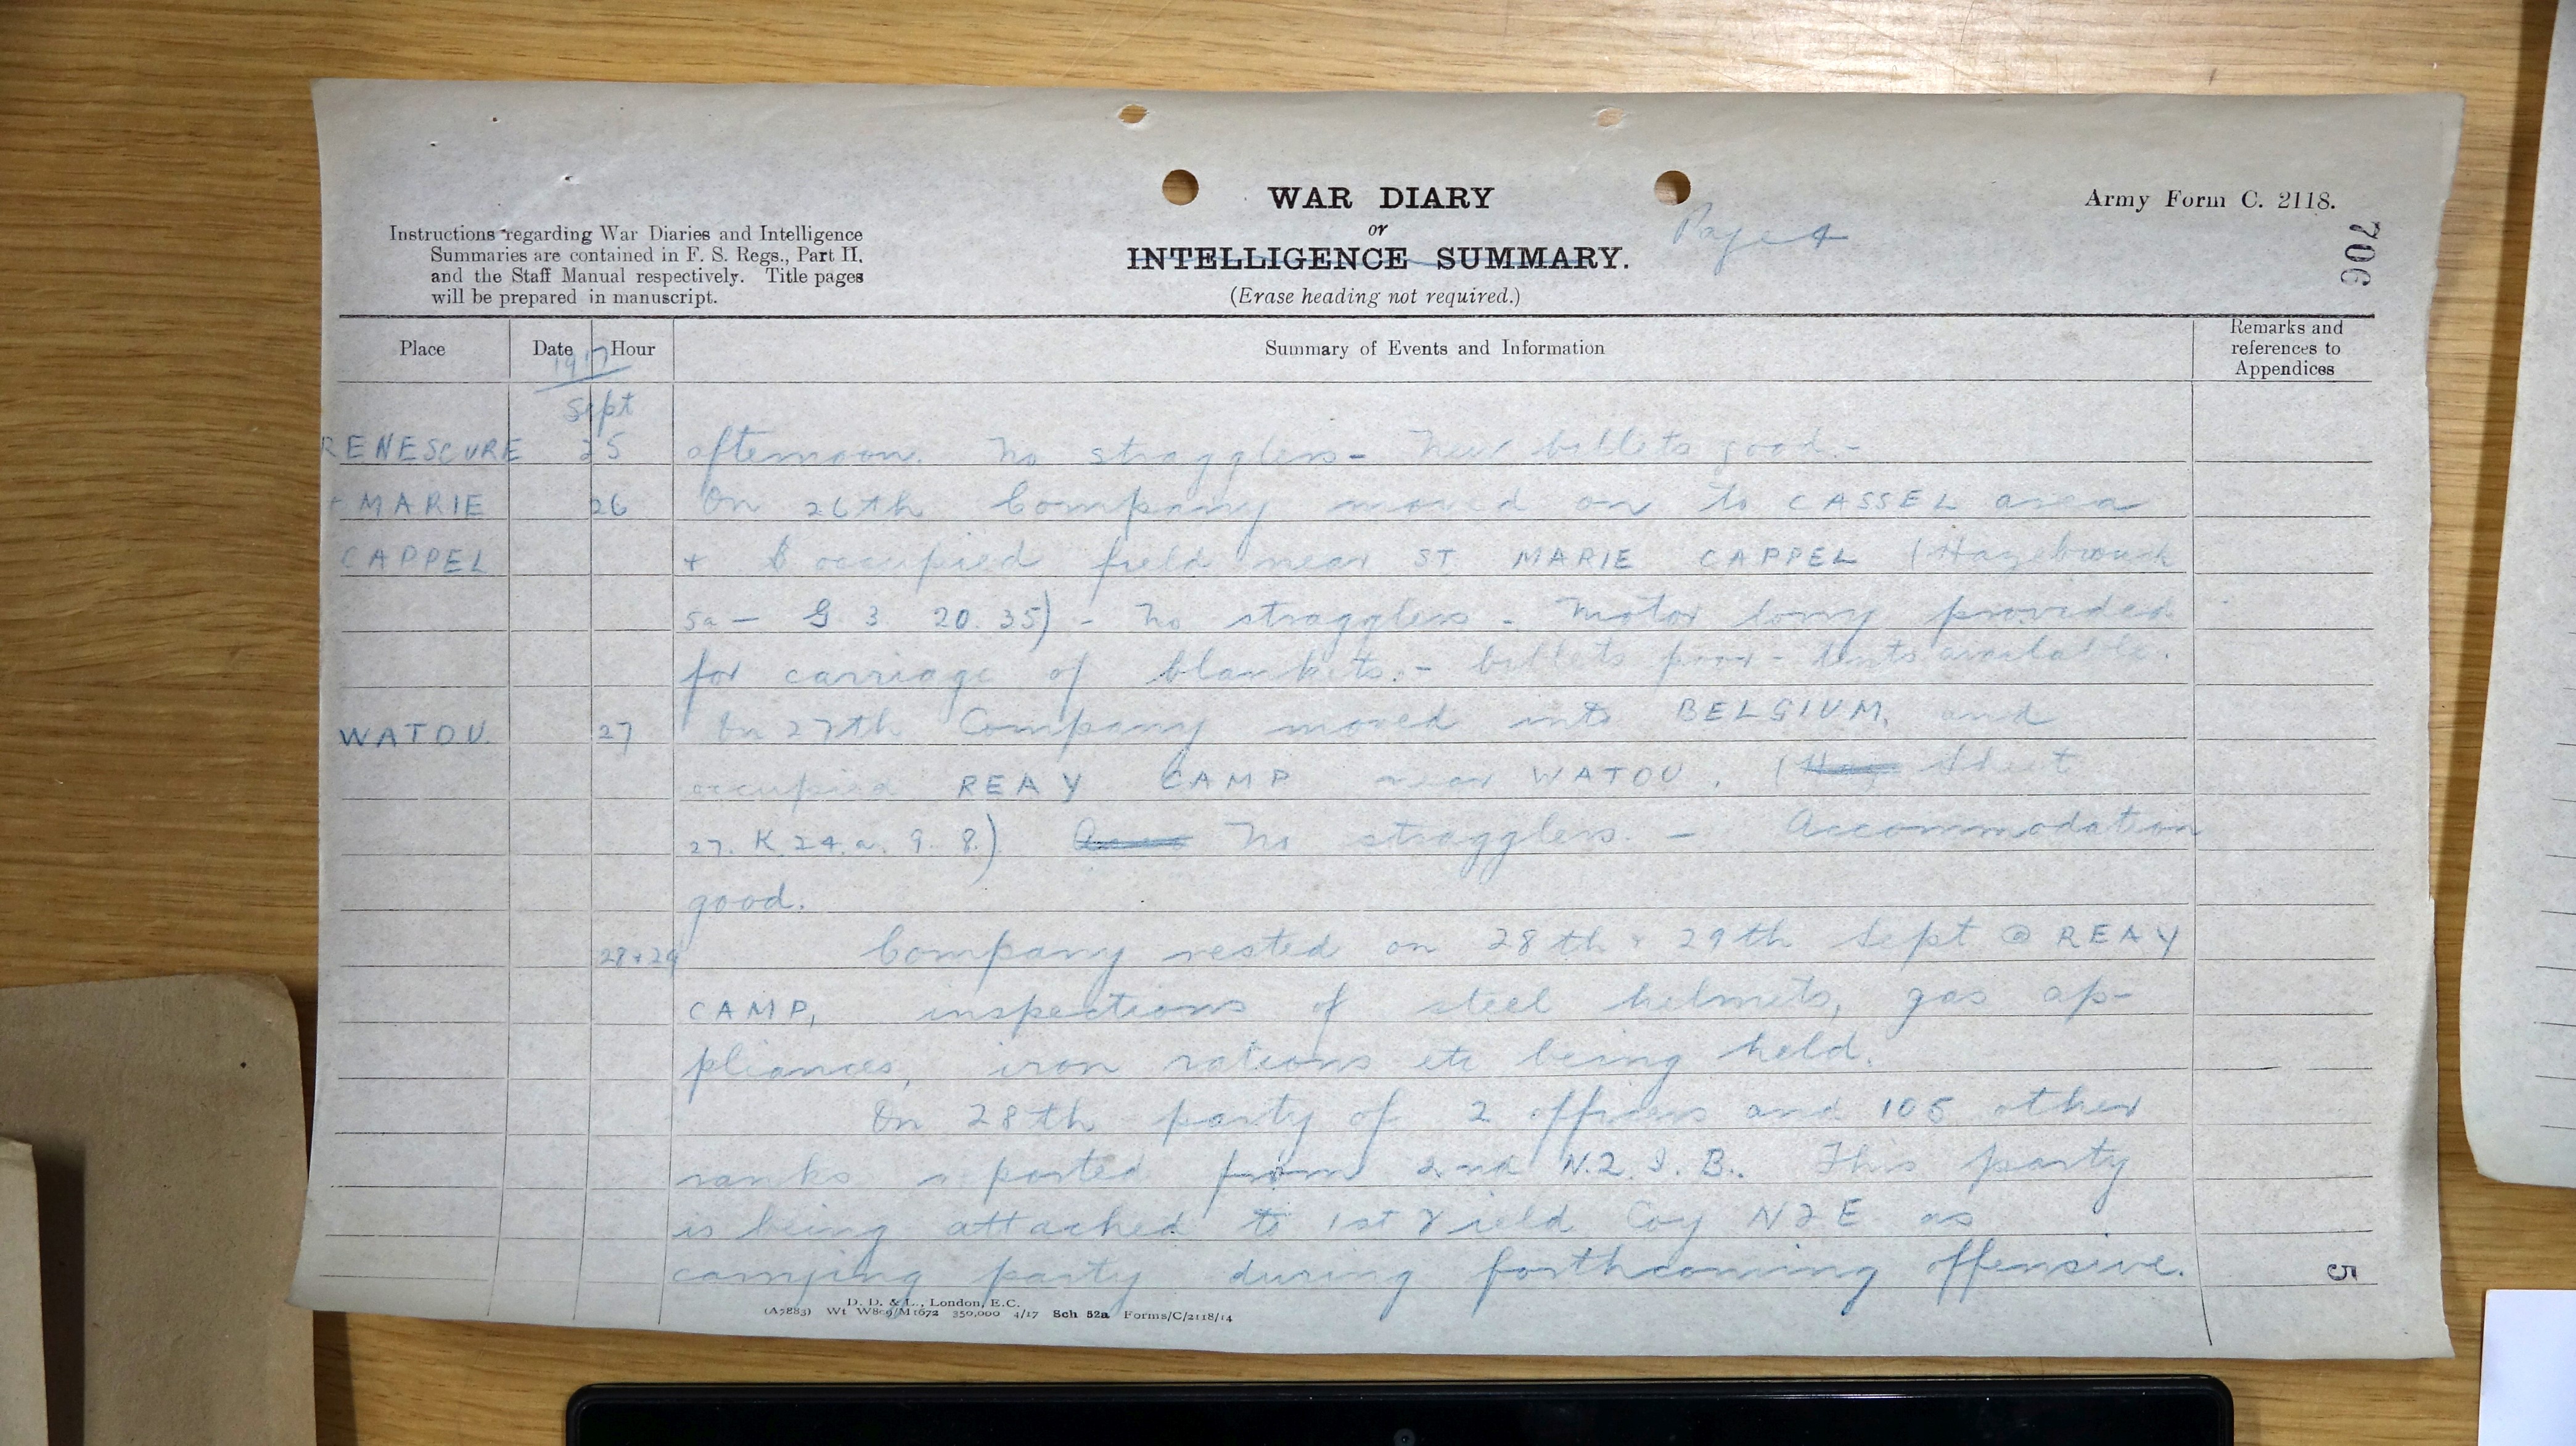 WAR DIARY
or
INTELLIGENCE SUMMARY.
(Erase heading not required.)
Page 4
Army Form C. 2118.
706
Instructions regarding War Diaries and Intelligence
Summaries are contained in F. S. Regs., Part II.
and the Staff Manual respectively. Title pages
will be prepared in manuscript.
Place Date Hour Summary of Events and Information Remarks and references to Appendices
1917
Sept
RENESCURE 25 afternoon. No stragglers - New billets good. -
MARIE 26 On 26th Company moved on to CASSEL area
CAPPEL + occupied field near ST MARIE CAPPEL (Hazebrouck
5a - G 3 20. 35) - No stragglers - Motor lorry provided
for carriage of blankets. - billets poor - tents available.
WATOU. 27 On 27th Company moved into BELGIUM, and
occupied REAY CAMP near WATOU. (Sheet
27. K. 24. a. 9. 8.) No stragglers. - Accommodation
good.
28 + 29 Company rested on 28th + 29th Sept @ REAY
CAMP, inspections of steel helmets, gas ap-
pliances, iron rations etc being held.
On 28th party of 2 officers and 105 other
ranks reported from 2nd N.Z.I.B. This party
is being attached to 1st Field Coy NZE as
carrying party during forthcoming offensive.
5
D. D. & L., London, E.C.
(A7883) Wt W809/M1672 350,000 4/17 Sch 52a Forms/C/2118/14